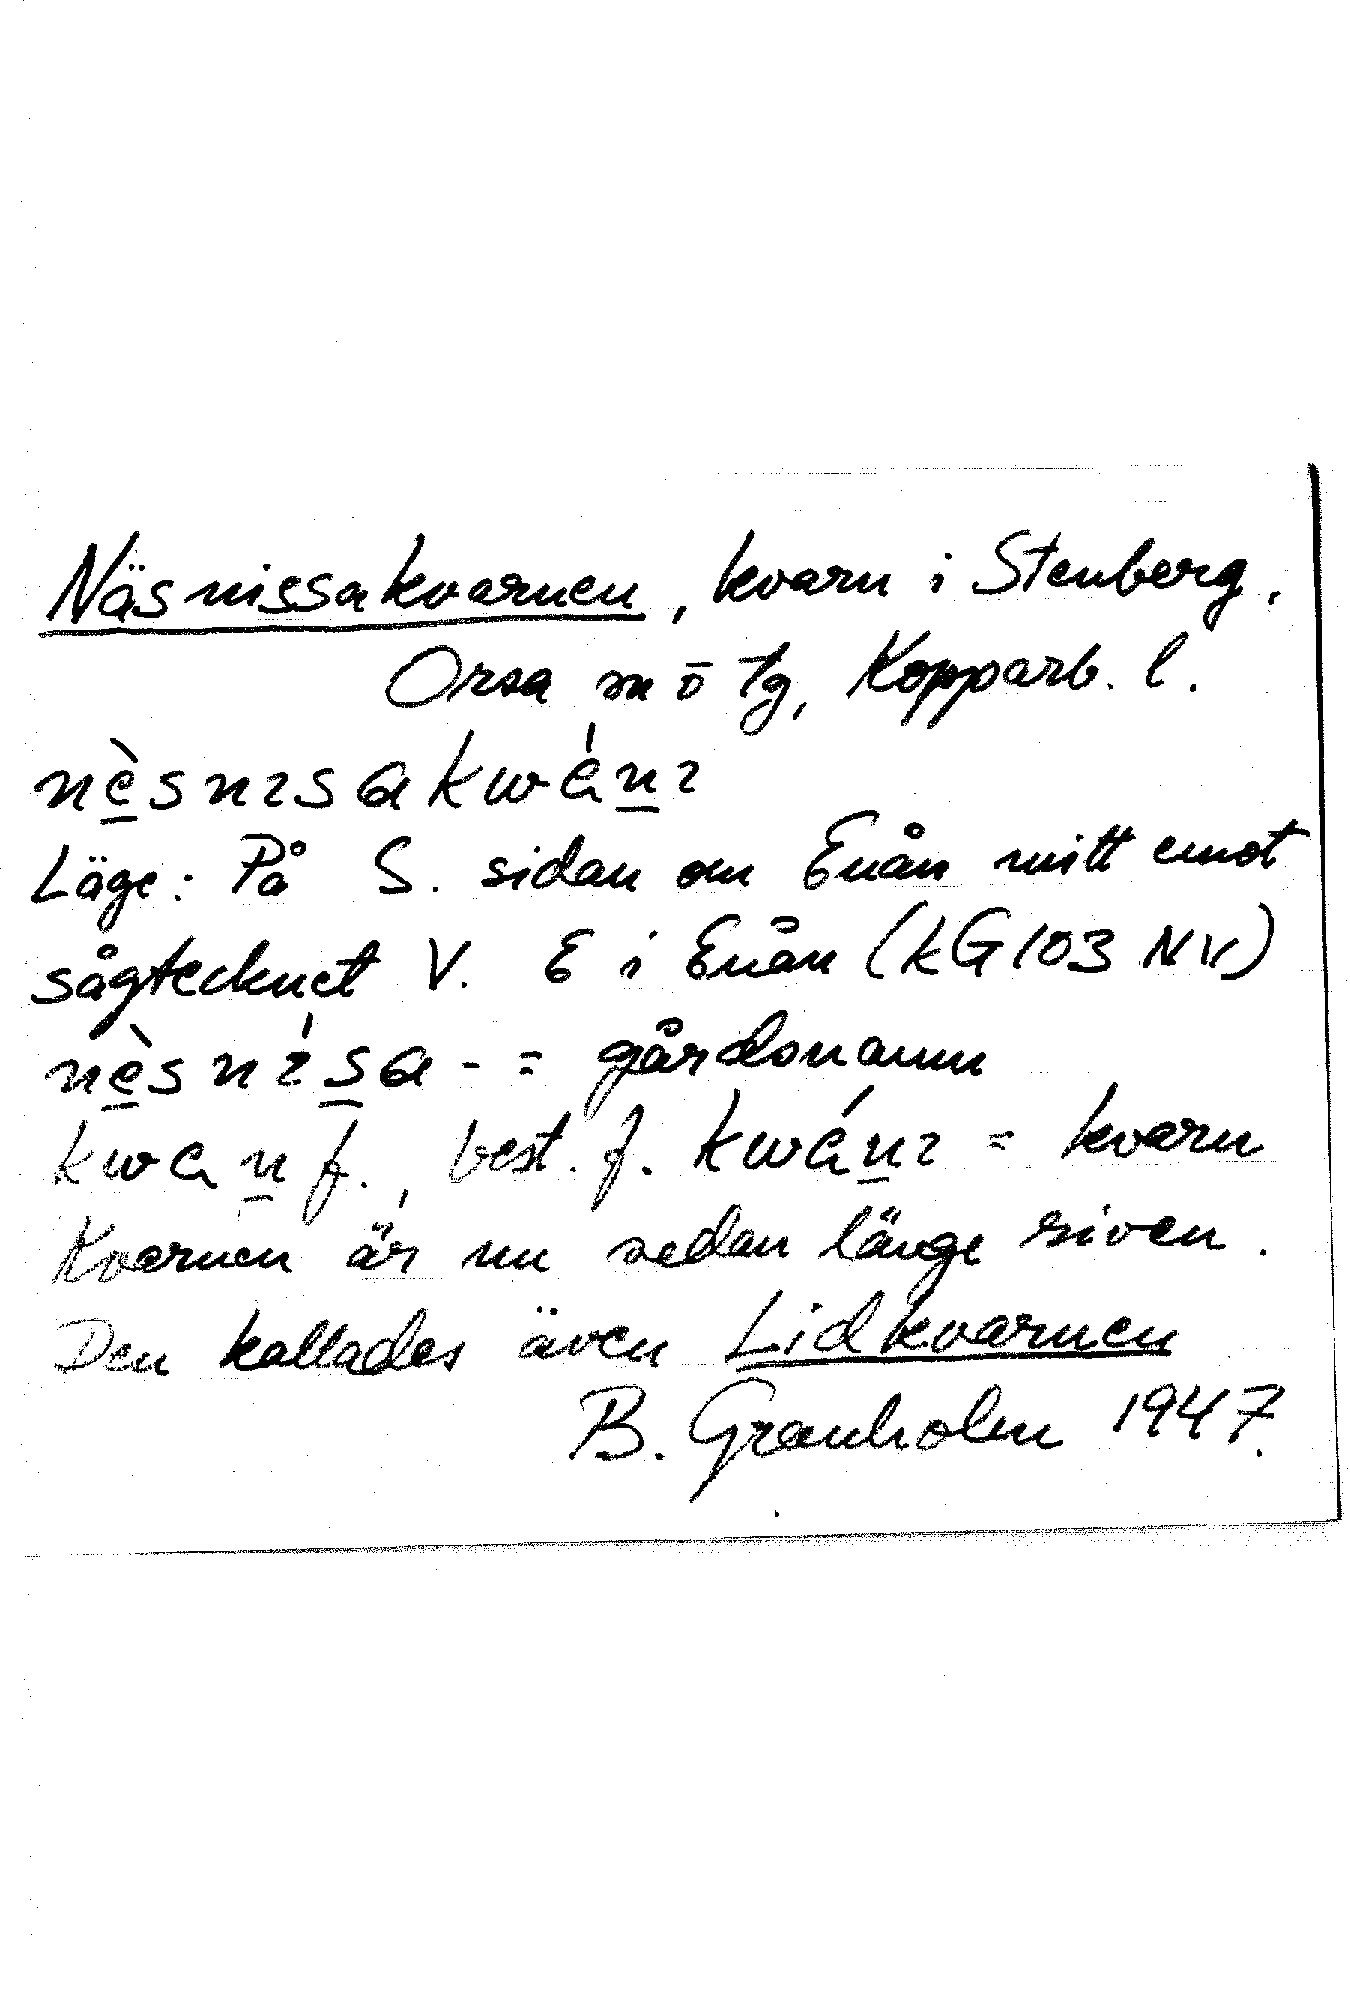 Näsnissakvarnen, kvarn i Stenberg,
Orsa sn ō tg, Kopparb. l.
nè̠snɪsakwán̠ɪ
Läge: På S. sidan om Enån mitt emot
sågtecknet V. E i Enån (kG103 NV)
nè̠snɪ́s̠a- = gårdsnamn
kwan̠ f., best. f. kwán̠ɪ = kvarn
Kvarnen är nu sedan länge riven.
Den kallades även Lidkvarnen
B. Granholm 1947.